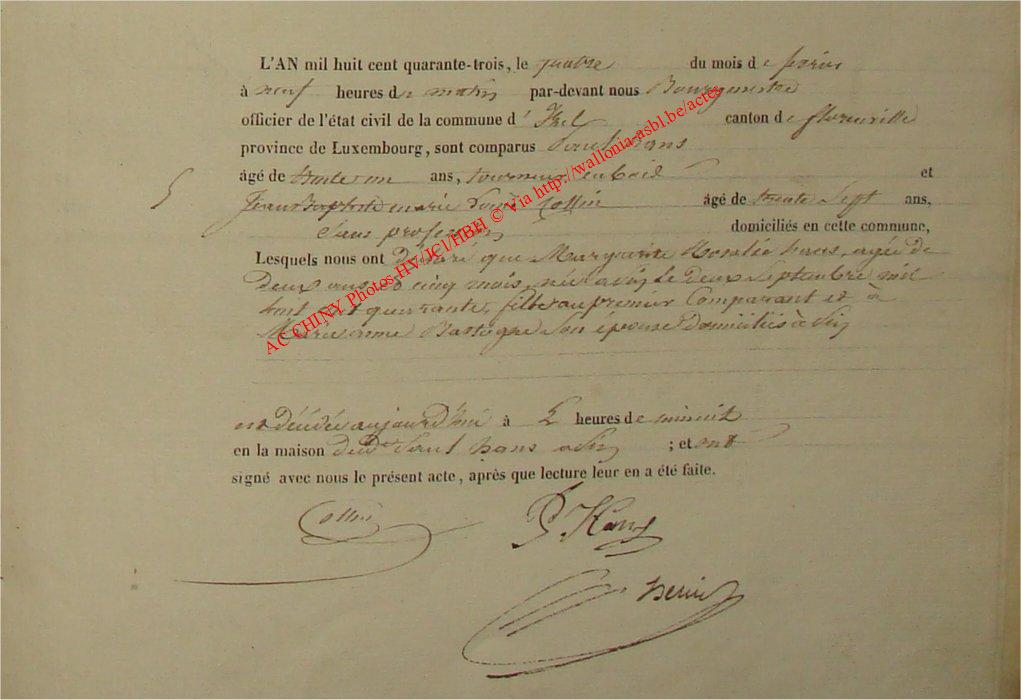 L'AN mil huit cent quarante-trois, le quatre du mois de février
à neuf heures de matin par-devant nous Bourgmestre
officier de l'état civil de la commune d' Izel canton de florenville
province de Luxembourg, sont comparus Paul hans
âgé de trente un ans, tourneur en bois et
5 Jean Baptiste marie Collin âgé de trente Sept ans,
Sans profession domiciliés en cette commune,
Lesquels nous ont déclaré que Marguerite Rosalie hans, agée de
Deux ans cinq mois, née a le deux Septembre mil
huit cent quarante, fille au premier Comparant et à
Marie anne Bastogne Son épouse domiciliés à
est décédée aujourd'hui à 2 heures de minuit
en la maison dud Paul hans a ; et ont
signé avec nous le présent acte, après que lecture leur en a été faite.
Collin P. Hans
AC CHINY Photos HV/JCl/HBH © Via http://wallonia-asbl.be/actes